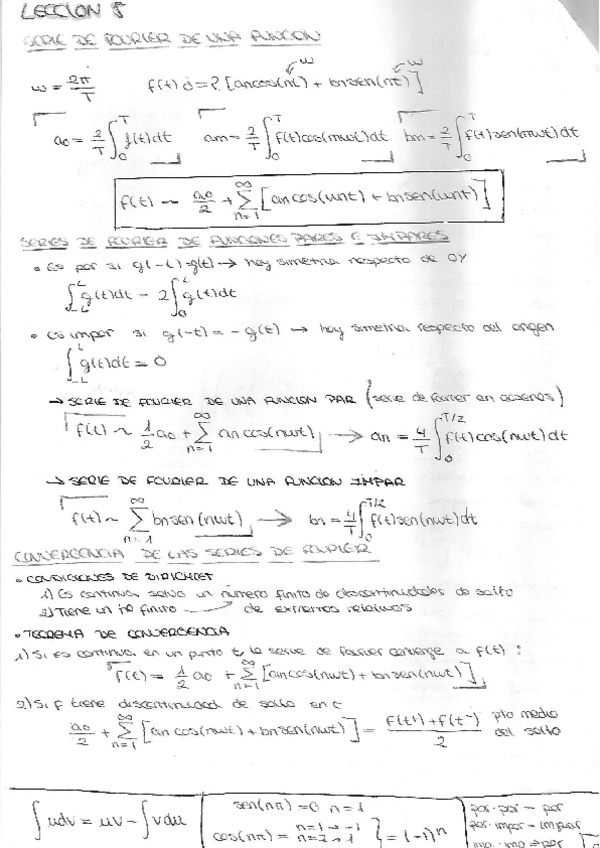 LECCION 8
SERIE DE FOURIER DE UNA FUNCION
w = 2π/T f(t) ¿=? [an cos(nt) + bn sen(nt)] w w
a0 = 2/T ∫₀ᵀ f(t)dt am = 2/T ∫₀ᵀ f(t)cos(mwt)dt bn = 2/T ∫₀ᵀ f(t)sen(mwt)dt
f(t) ~ a0/2 + ∑ₙ₌₁^∞ [an cos(wnt) + bn sen(wnt)]
SERIES DE FOURIER DE FUNCIONES PARES E IMPARES
• Es par si g(-t)=g(t) → hay simetria respecto de OY
∫₋L^L g(t)dt = 2∫₀^L g(t)dt
• Es impar si g(-t) = -g(t) → hay simetria respecto del origen
∫₋L^L g(t)dt = 0
→ SERIE DE FOURIER DE UNA FUNCION PAR (serie de fourier en cosenos)
f(t) ~ 1/2 a0 + ∑ₙ₌₁^∞ an cos(nwt) → an = 4/T ∫₀^T/2 f(t)cos(nwt)dt
→ SERIE DE FOURIER DE UNA FUNCION IMPAR
f(t) ~ ∑ₙ₌₁^∞ bn sen(nwt) → bn = 4/T ∫₀^T/2 f(t)sen(nwt)dt
CONVERGENCIA DE LAS SERIES DE FOURIER
• CONDICIONES DE DIRICHLET
1) Es continua salvo un número finito de discontinuidades de salto
2) Tiene un nº finito de extremos relativos
• TEOREMA DE CONVERGENCIA
1) Si es continua en un punto t, la serie de fourier converge a f(t) :
f(t) = 1/2 a0 + ∑ₙ₌₁^∞ [an cos(nwt) + bn sen(nwt)]
2) Si f tiene discontinuidad de salto en t
a0/2 + ∑ₙ₌₁^∞ [an cos(nwt) + bn sen(nwt)] = f(t⁺)+f(t⁻)/2 pto medio del salto
∫udv = uv - ∫vdu
sen(nπ) = 0 n = 1
cos(nπ) = n=1 → -1 n=2 → 1 } = (-1)ⁿ
par·par = par
par·impar = impar